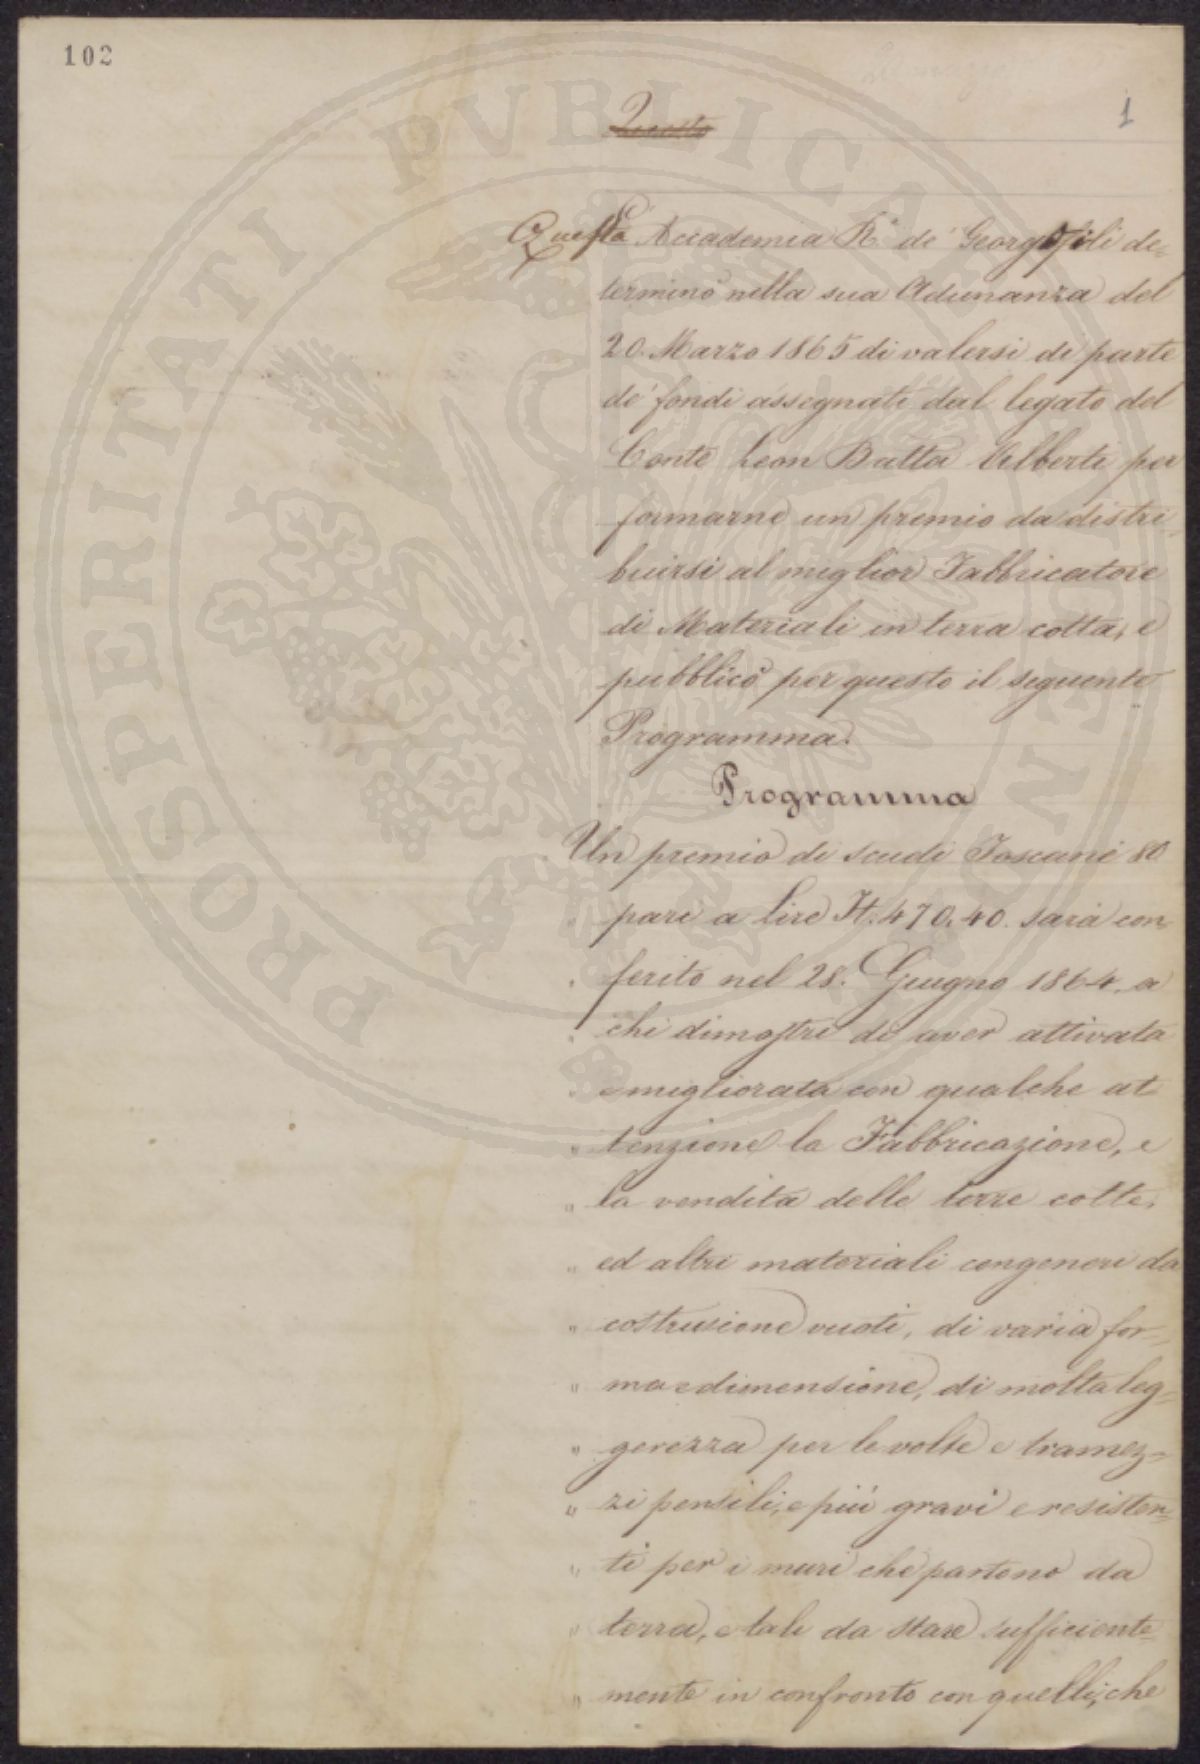 102
1
Questa
Questa Accademia R.e de' Georgofili de-
terminò nella sua Adunanza del
20. Marzo 1865 di valersi di parte
de' fondi assegnati dal legato del
Conte Leon Batta Alberti per
formarne un premio da distri-
buirsi al miglior Fabbricatore
di Materiali in terra cotta, e
pubblicò per questo il seguente
Programma.
Programma
Un premio di scudi Toscani 80
" pari a lire It. 470.40. sarà con-
" ferito nel 28. Giugno 1864. a
" chi dimostri di aver attivata
" e migliorata con qualche at-
" tenzione la Fabbricazione, e
" la vendita delle terre cotte,
" ed altri materiali congeneri da
" costruzione vuoti, di varia for-
" ma e dimensione, di molta leg-
" gerezza per le volte e tramez-
" zi pensili, e più gravi e resisten-
" ti per i muri che partono da
" terra, e tali da stare sufficiente-
" mente in confronto con quelli, che
PROSPERITATI PVBLICAE AVGENDAE